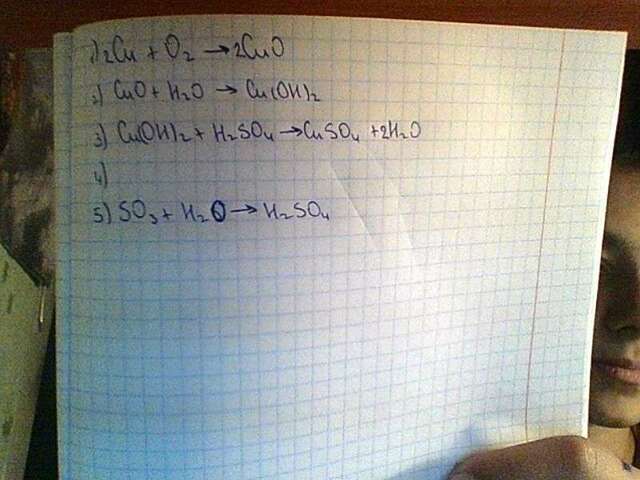 1) 2Cu + O2 → 2CuO
2) CuO + H2O → Cu(OH)2
3) Cu(OH)2 + H2SO4 → CuSO4 + 2H2O
4)
5) SO3 + H2O → H2SO4